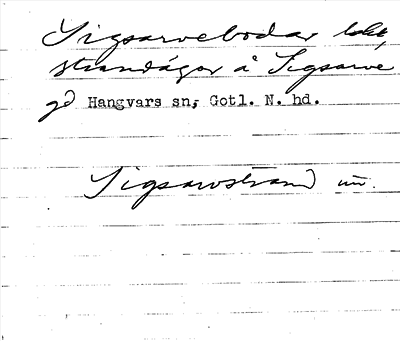 Sigsarvebodar
strandägor å Sigsarve
gd Hangvars sn, Gotl. N. hd.
Sigsarvstrand